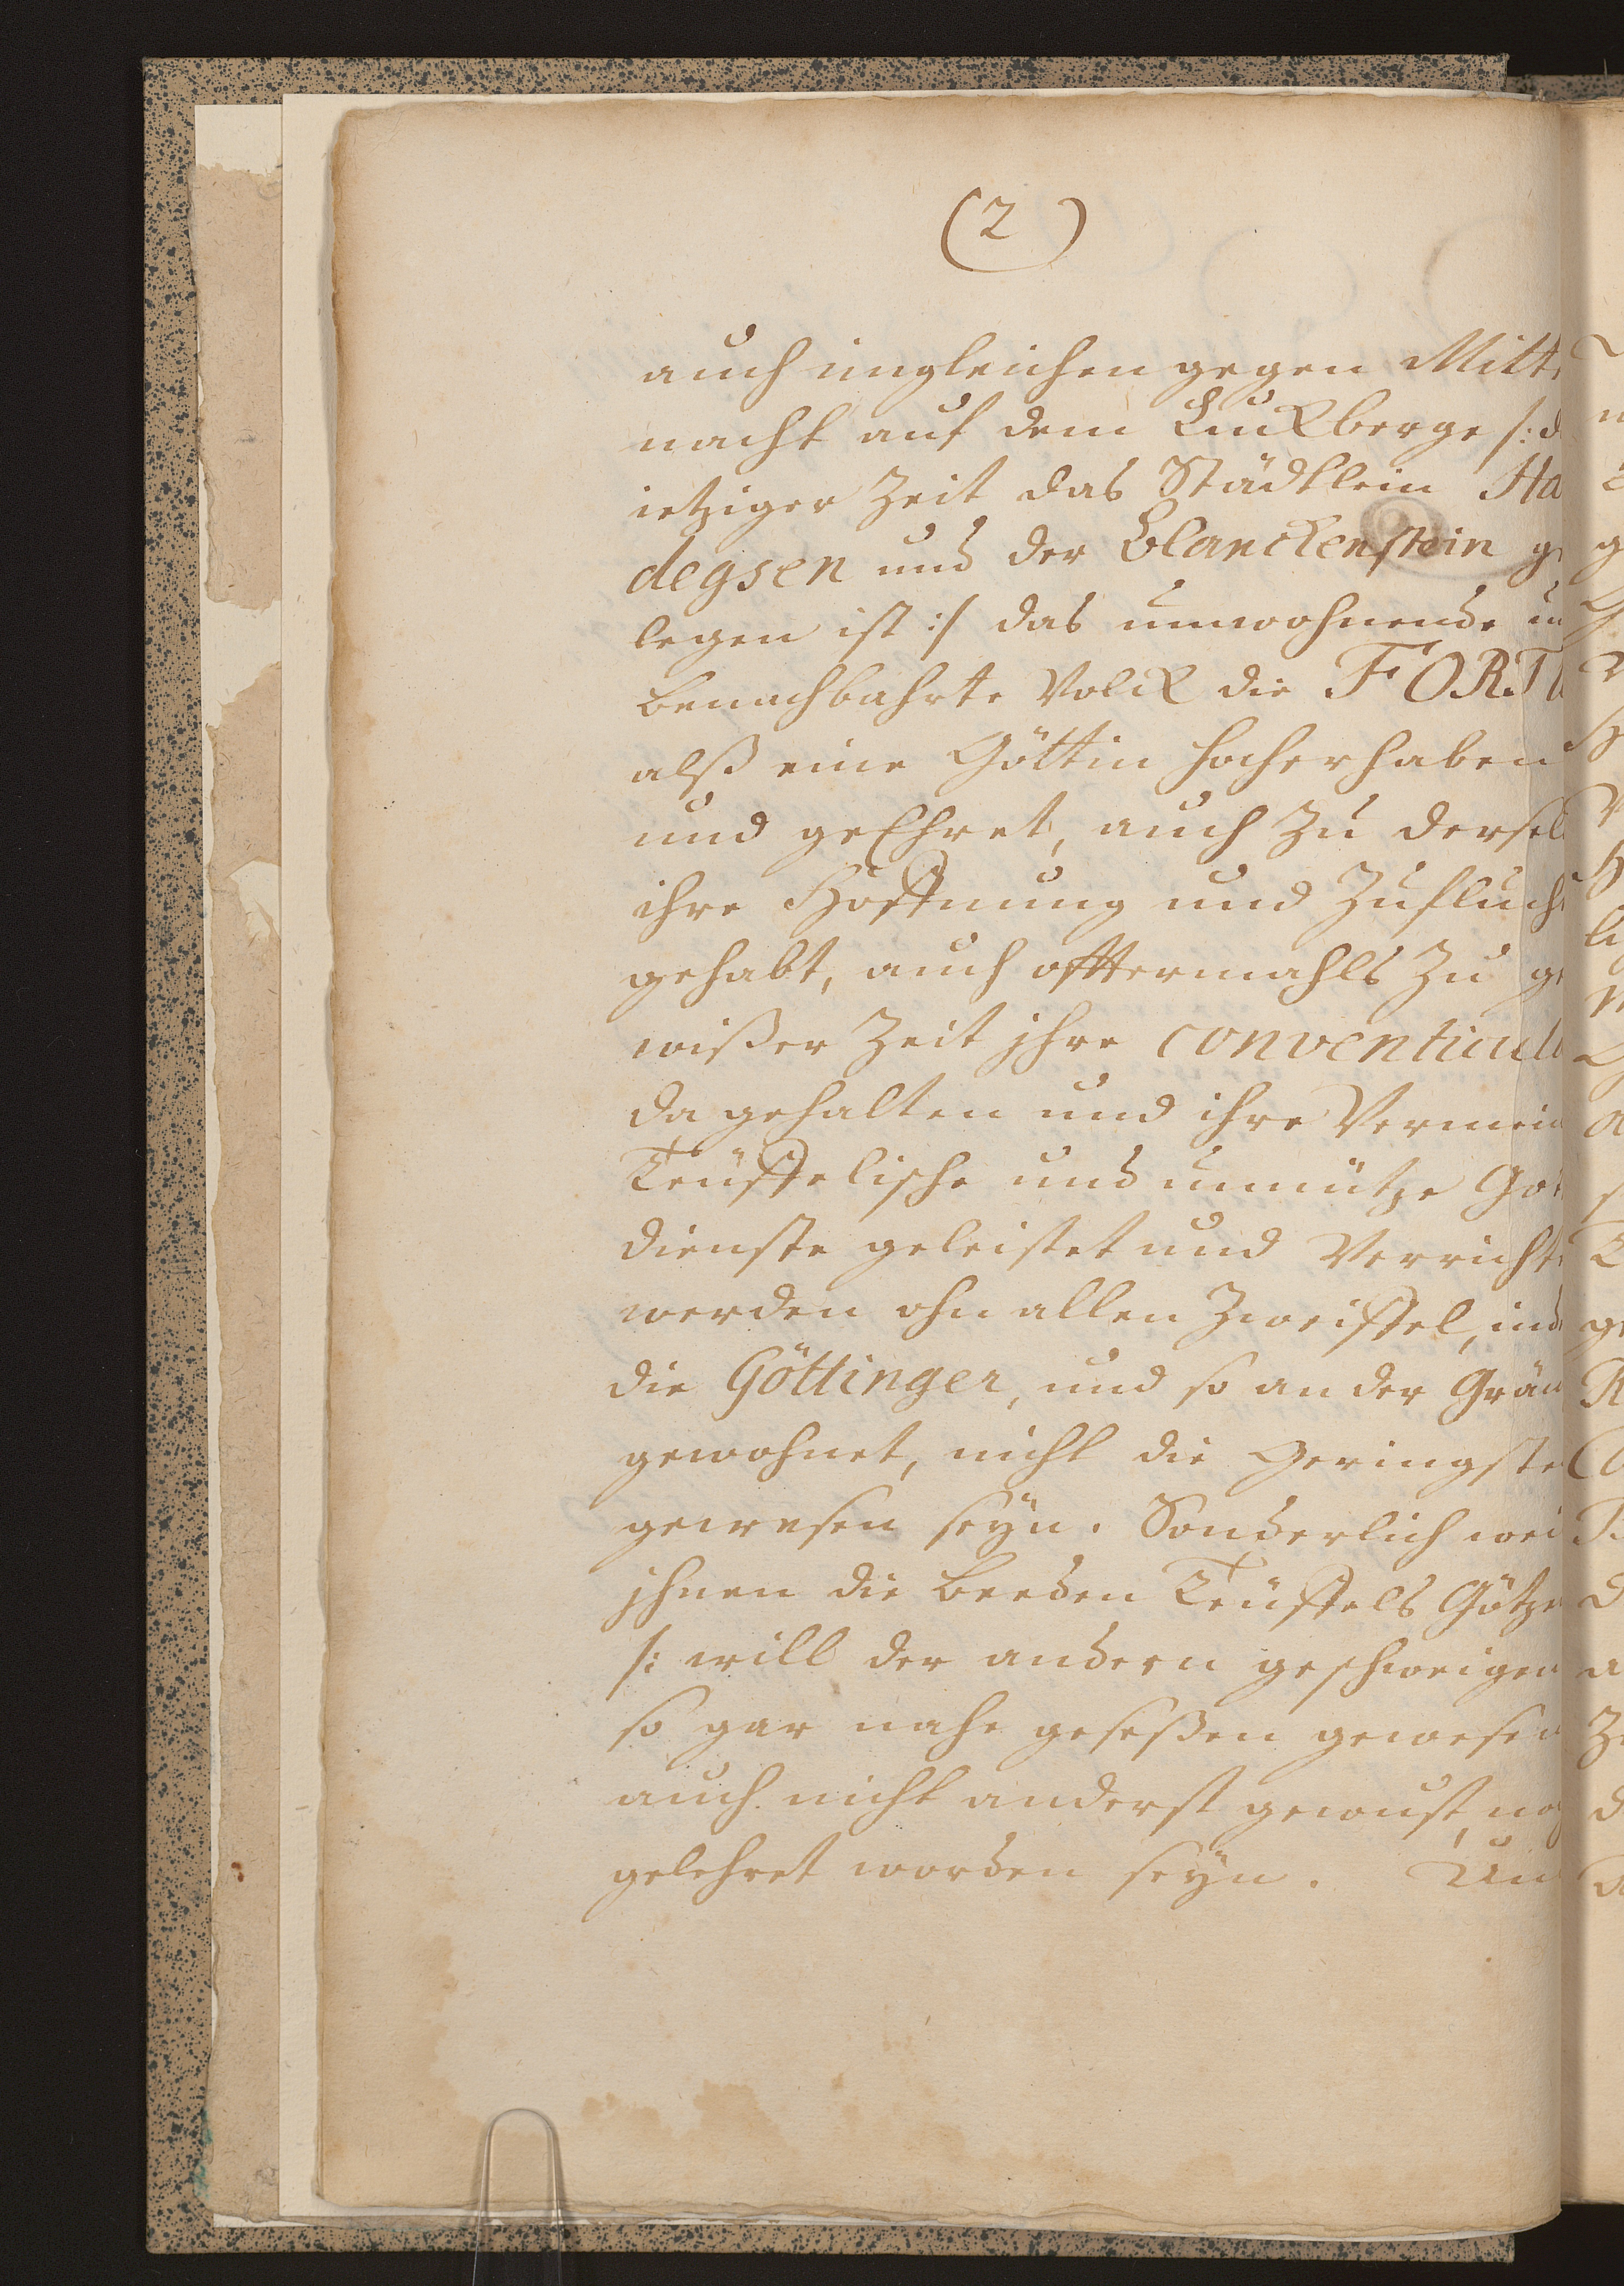 (2)
auch imgleichen gegen Mitt
nacht auf dem Lückberge /: d
ietziger Zeit das Städtlein Ha
degsen und der Blanckenstein ge
legen ist :/ das umwohnende u
benachbahrte Volck die FORTU
alß eine Göttin hocherhaben
und geEhret, auch zu dersel
ihre Hoffnung und Zuflucht
gehabt, auch offtermahls zu ge
wißer Zeit jhre conventicul
da gehalten und ihre Vermein
Teüffelische und unnütze Got
dienste geleistet und Verricht
werden ohn allen Zweiffel, ind
die Göttinger, und so an der Grän
gewohnet, nicht die Geringste
gewesen seyn. Sonderlich wei
jhnen die beeden Teüffels Götze
/: will der andern geschweigen
so gar nahe geseßen gewesen
auch nicht anderst gewust, no
gelehret worden seyn. Un